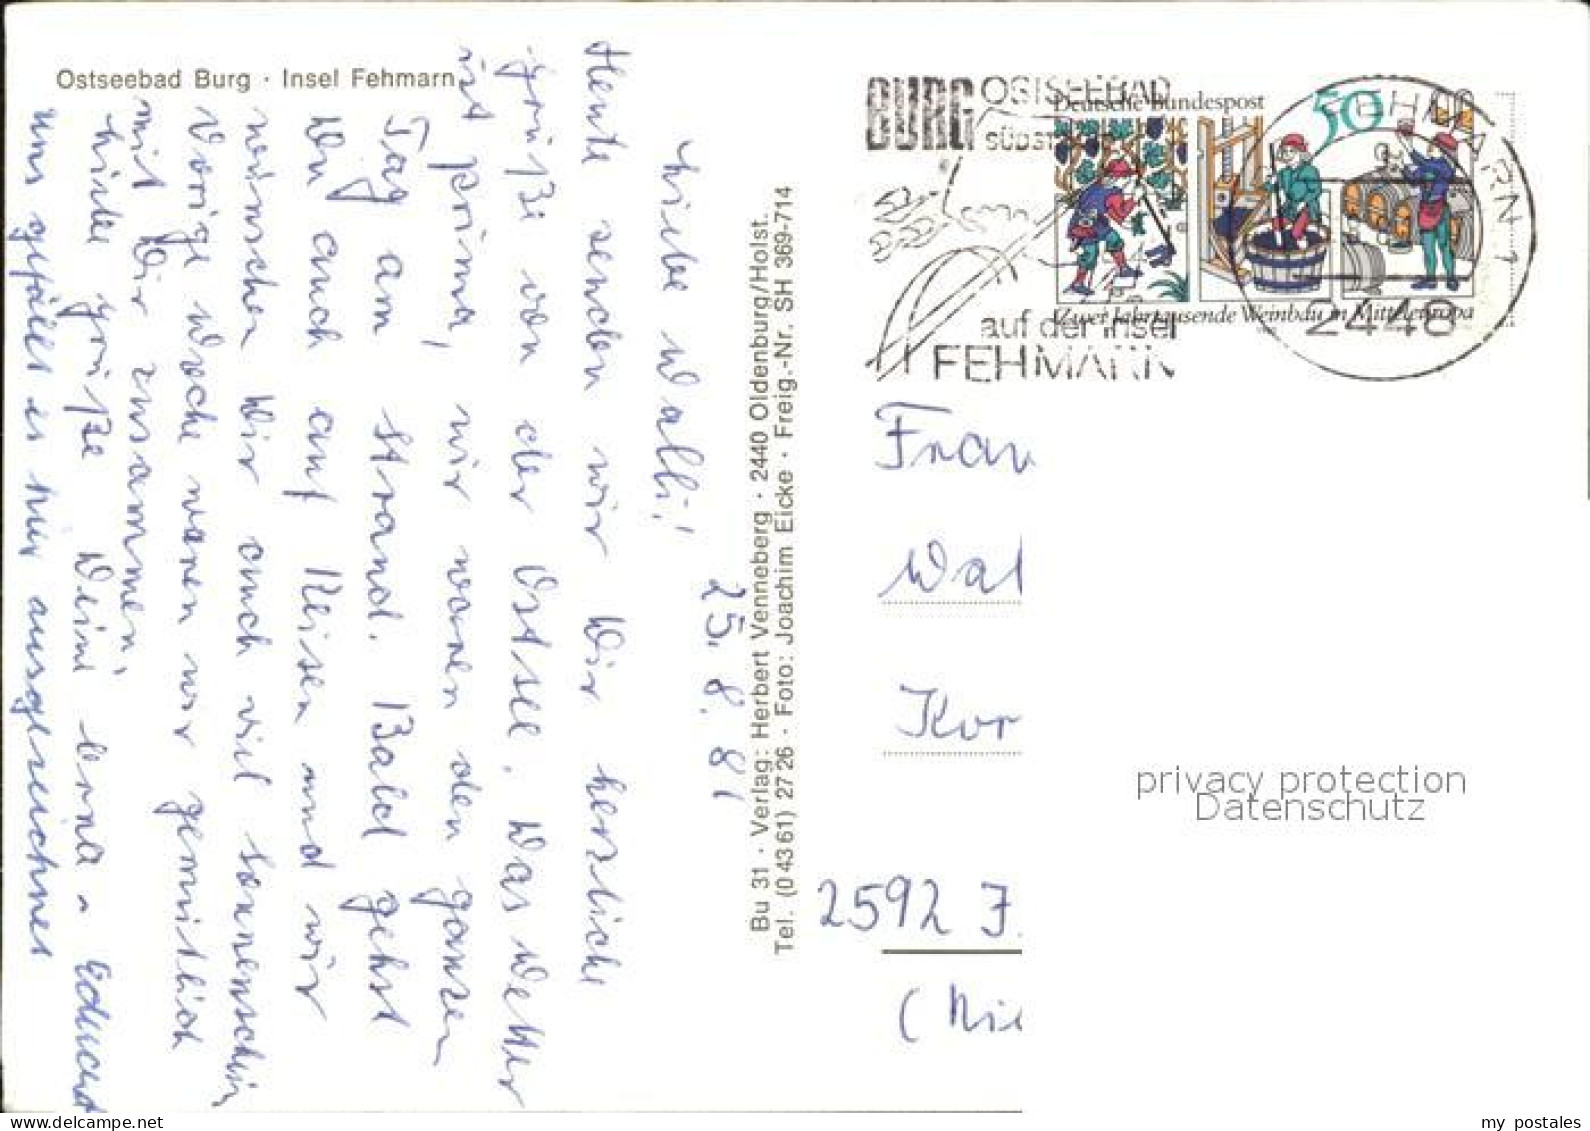 Ostseebad Burg · Insel Fehmarn
25. 8. 81
Liebe Walli!
Heute senden wir Dir herzliche
Grüße von der Ostsee. Das Wetter
ist prima, wir waren den ganzen
Tag am Strand. Bald gehst
Du auch auf Reisen und wir
wünschen Dir auch viel Sonnenschein
Vorige Woche waren wir gemütlich
mit Dir zusammen,
Liebe Grüße Deine Erna
uns gefällt es hier ausgezeichnet
Bu 31 · Verlag: Herbert Venneberg · 2440 Oldenburg/Holst.
Tel. (0 43 61) 27 26 · Foto: Joachim Eicke · Freig.-Nr. SH 369-714
BURG OSTSEEBAD
auf der Insel
FEHMARN
Deutsche Bundespost
50
Zwei Jahrtausende Weinbau in Mitteleuropa
FEHMARN 1
2448
Frau
Wal
Kor
2592 J.
(Nie
privacy protection
Datenschutz
my postales